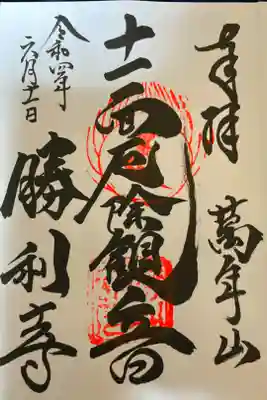 奉拝
萬年山
十一面厄除観音
令和四年
六月十一日
勝利寺